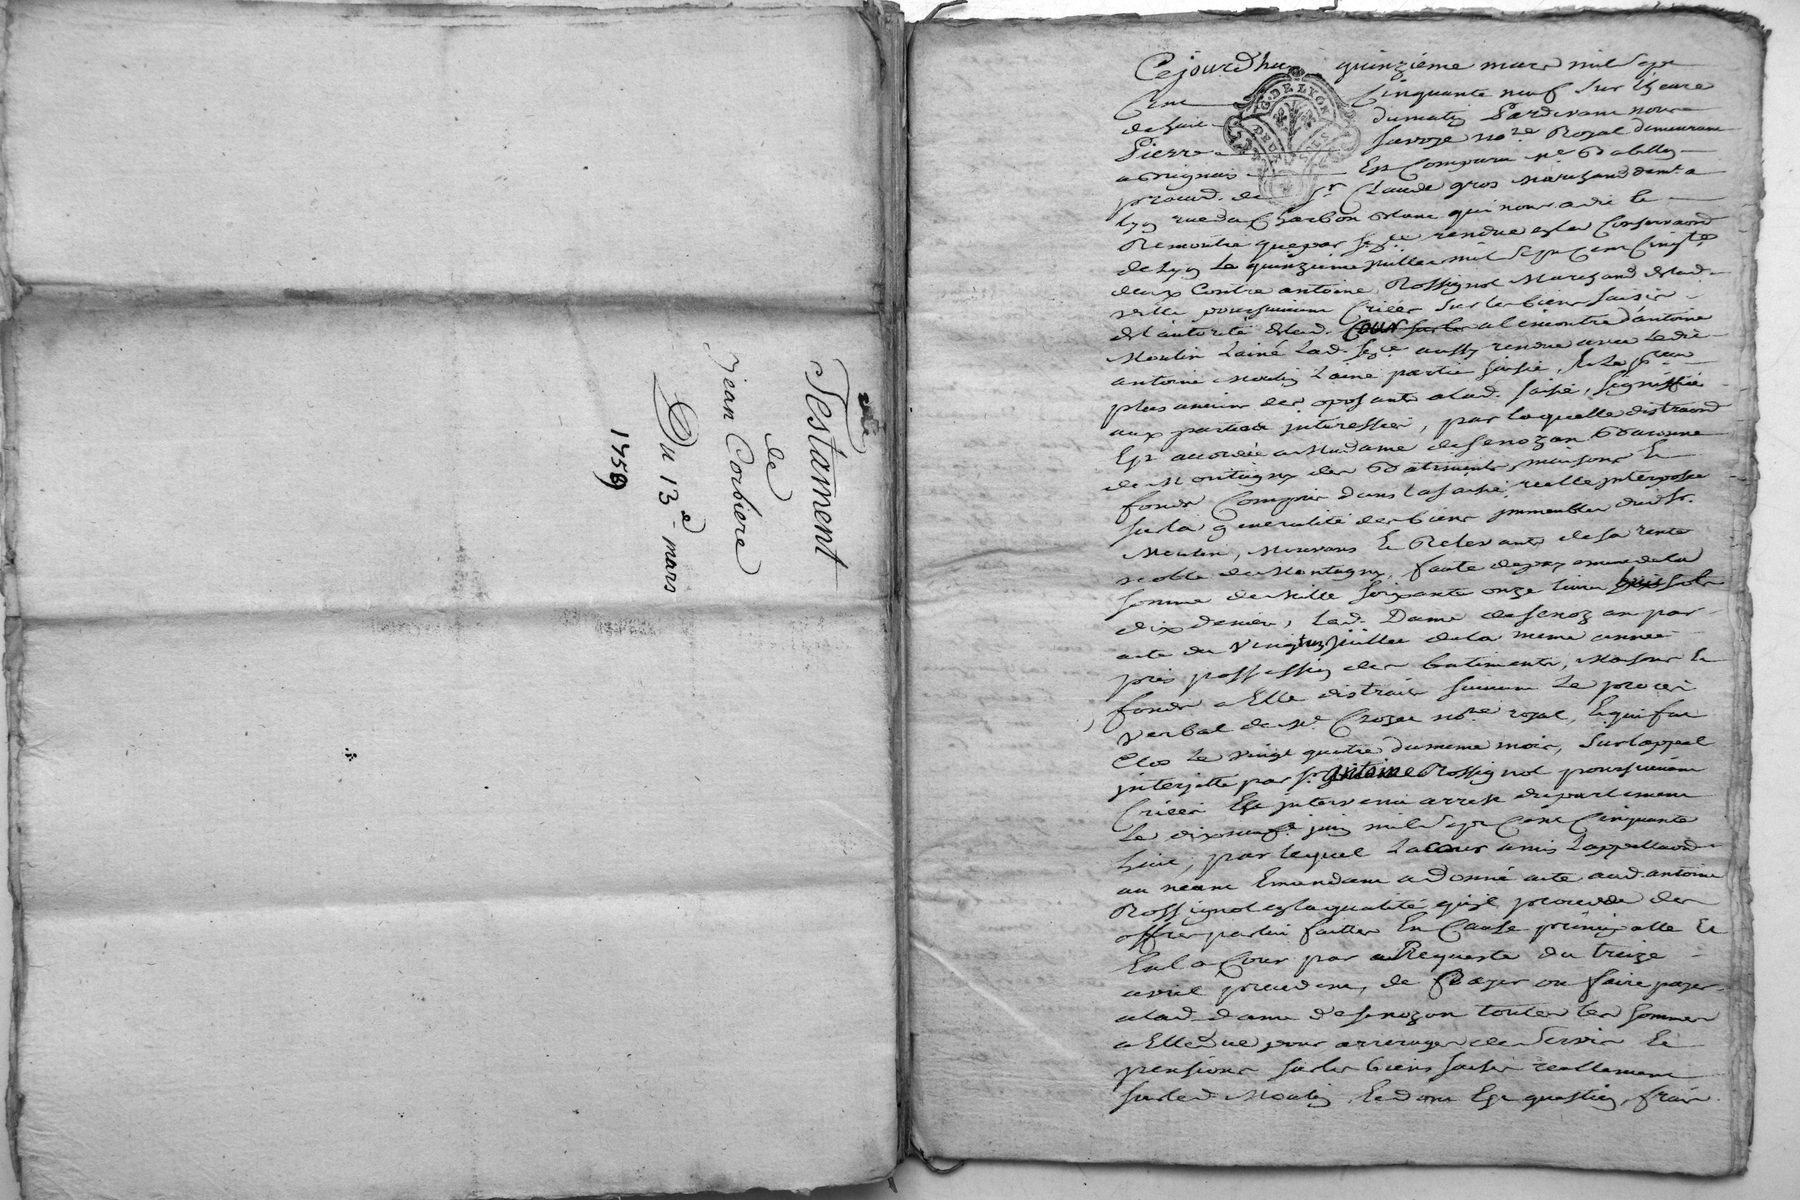 Testament
de
Jean Corbiere
Du 13e mars
1759
G. DE LYON
DEUX SOLS
Cejourdhuy quinzième mars mil sept
Cent Cinquante neuf sur lheure
de huit du matin Pardevant nous
Pierre Savoye nore Royal demeurant
a Brignais Est Comparu Me
procur. de Sr Claude gros Marchand demt a
lyon rue du Charbon blanc qui nous a dit Et
Remontré que par Sce rendue en la Conservaon
de Lyon Le quinzieme juillet mil Sept Cent Cinqte
deux Contre antoine Rossignol Marchand de lad.
ville poursuivant Criées Sur les biens saisis
de lautorité de lad. Cour a lencontre d'antoine
Moulin Lainé Lad. Sce aussy rendue avec Ledit
antoine Moulin Lainé partie saisie, Et Le
plus ancien des oposants a lad. saisie, signiffiée
aux parties interessées, par laquelle distraon
Est accordée a Madame de Senozan Baronne
de Montagny des Batiments, maisons Et
fonds Compris dans la saisie réelle interposée
sur la generalité des biens immeubles dud. Sr.
Moulin, Mouvans Et Relevants de sa rente
noble de Montagny, faute de payement de la
somme de Mille soixante onze livres sols
dix deniers, Lad. Dame de Senozan par
acte du vingt juillet de la meme année
pris possession des batiments, Maisons Et
fonds a Elle distraits suivant Le procès
verbal de Me Crozet nore royal, Et qui fut
Clos Le vingt quatre du meme mois, Sur lappel
interjetté par Sr. Antoine Rossignol poursuivant
Criées Est intervenu arrest du parlement
Le dixneuf juin mil Sept Cent Cinquante
huit, par lequel La Cour a mis Lappellaon
au neant Emendant a donné acte aud. antoine
Rossignol en la qualité qu'il procede des
offres par lui faittes En Cause principalle Et
En la Cour par Requeste du treize
avril precedent, de payer ou faire payer
a lad. dame de Senozan toutes les sommes
a Elle due pour arrerages de Servis Et
pensions sur les biens saisis reellement
sur led. Moulin, Et dont Est question, frais